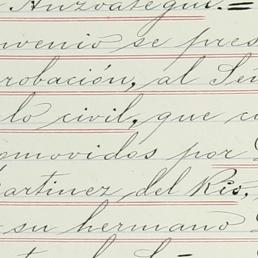 Anzoátegui.=
venio se pres
robación, al Señ
lo civil, que c
omovidos por
artinez del Rio,
su hermano